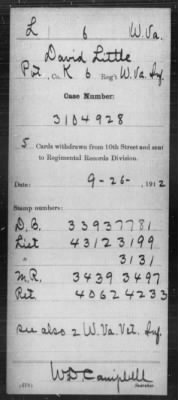 L 6 W. Va.
David Little
Pvt., Co. K 6 Reg't W. Va. Inf.
Case Number:
3104928
5 Cards withdrawn from 10th Street and sent
to Regimental Records Division.
Date: 9-26-, 1912
Stamp numbers:
D.B. 33937781
List 43123199
" 3131
M.R. 34393497
Ret. 40624233
see also 2 W. Va. Vet. Inf.
WD Campbell